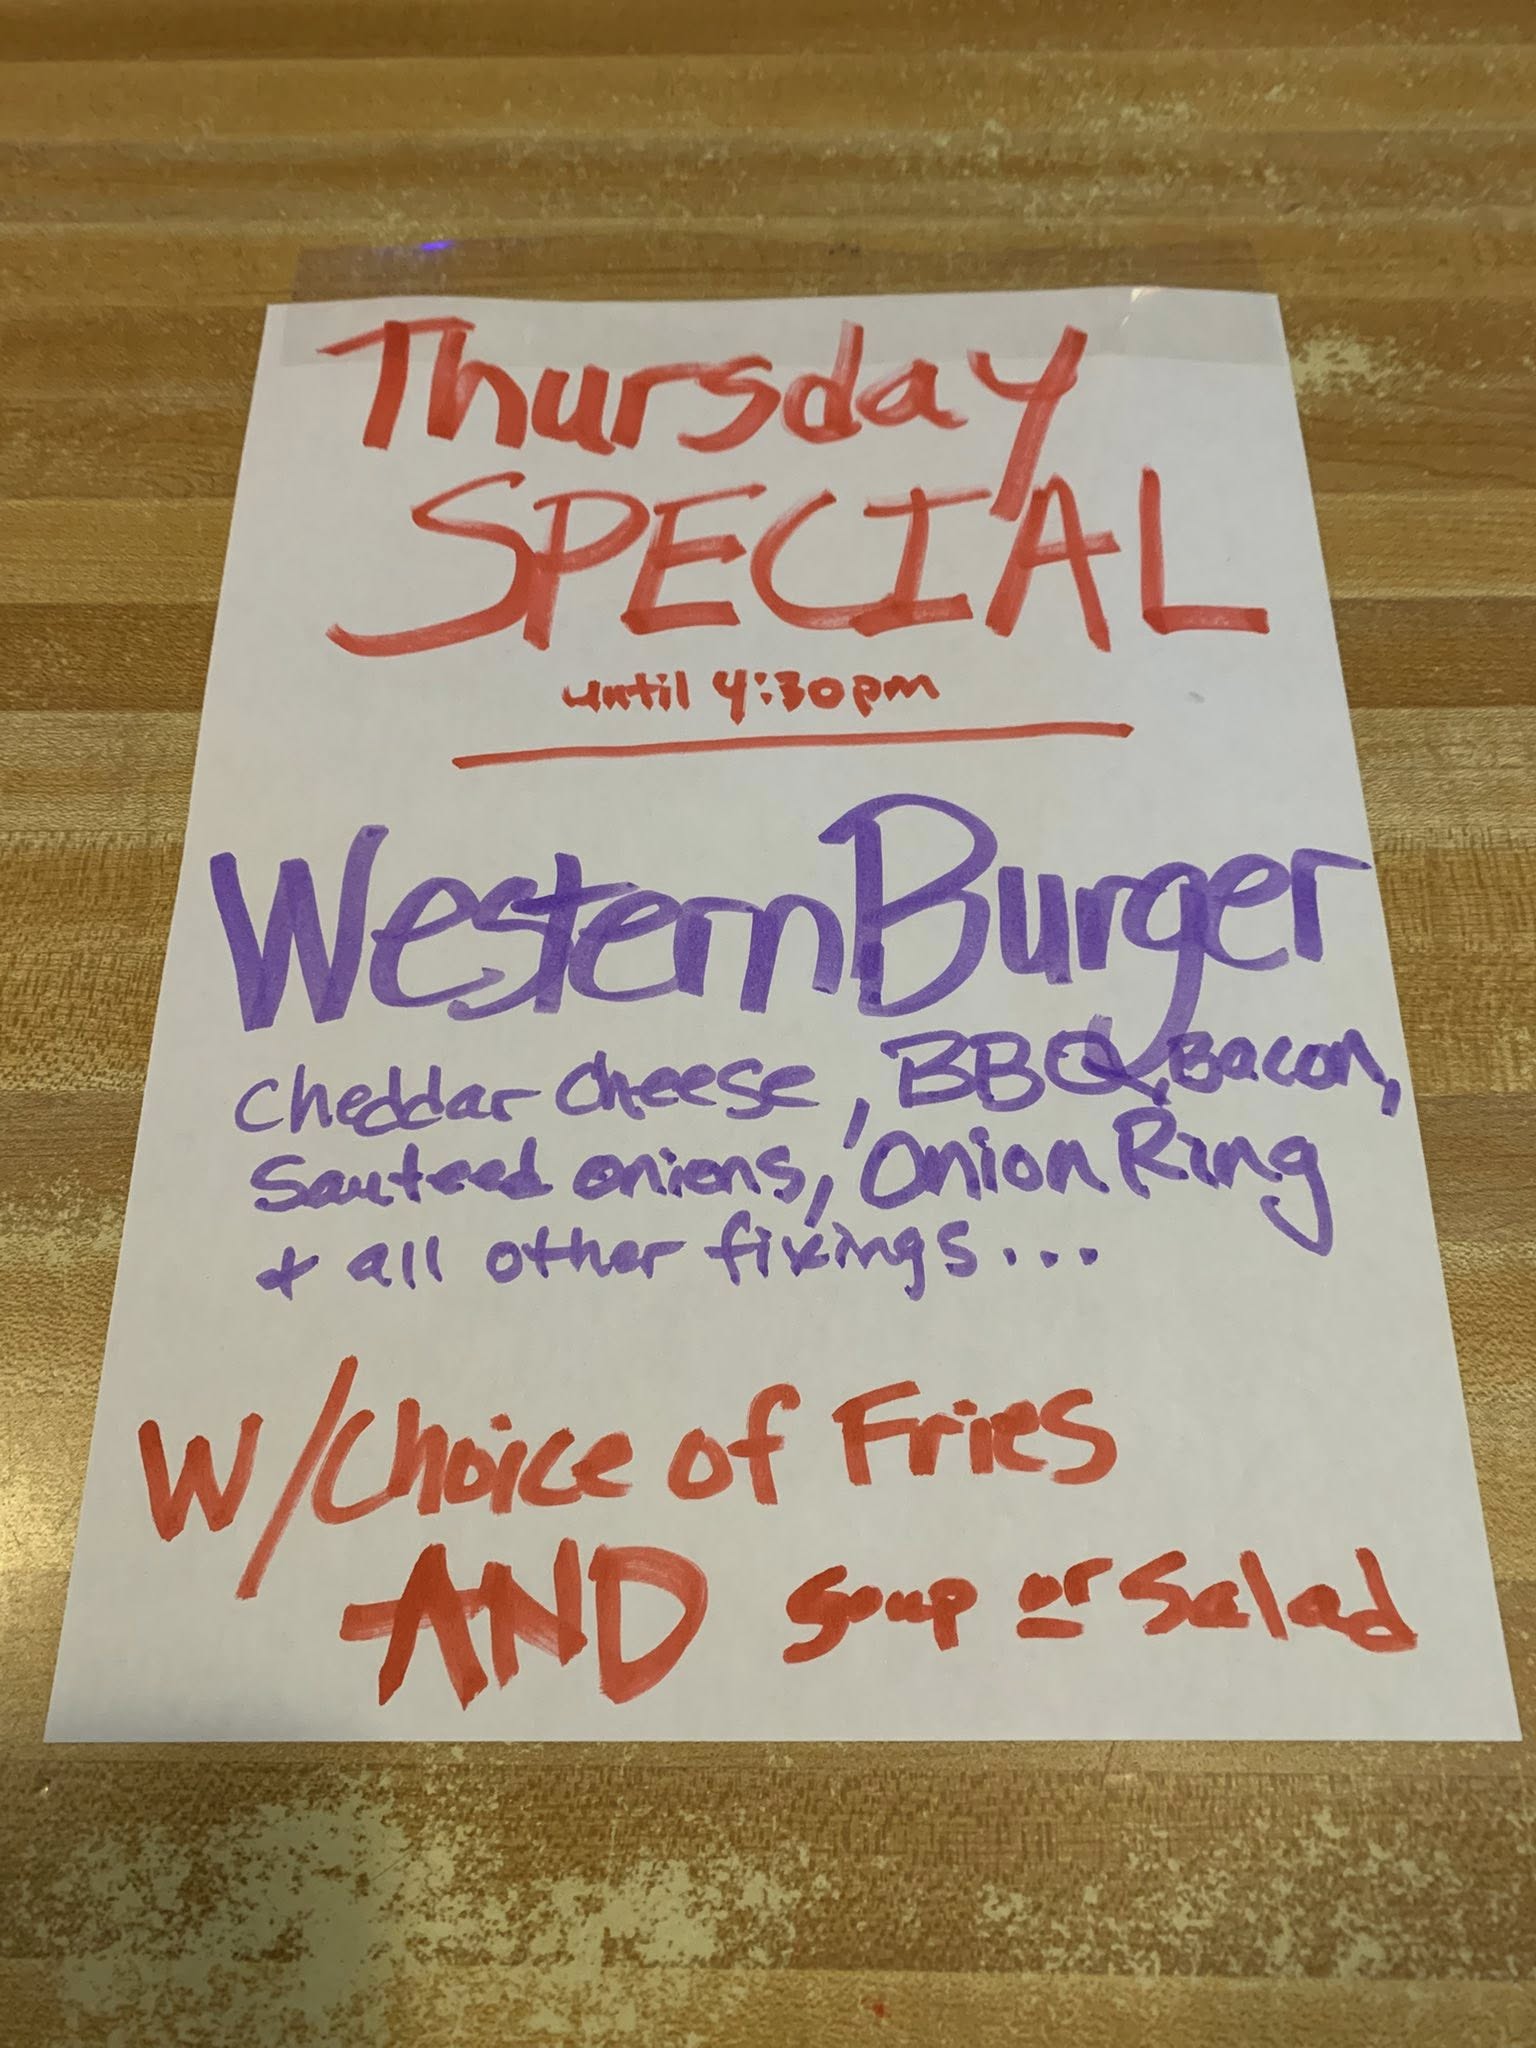 Thursday
SPECIAL
until 4:30pm
Western Burger
Cheddar Cheese, BBQ, Bacon,
Sauteed onions, Onion Ring
+ all other fixings...
W/Choice of Fries
AND soup or Salad